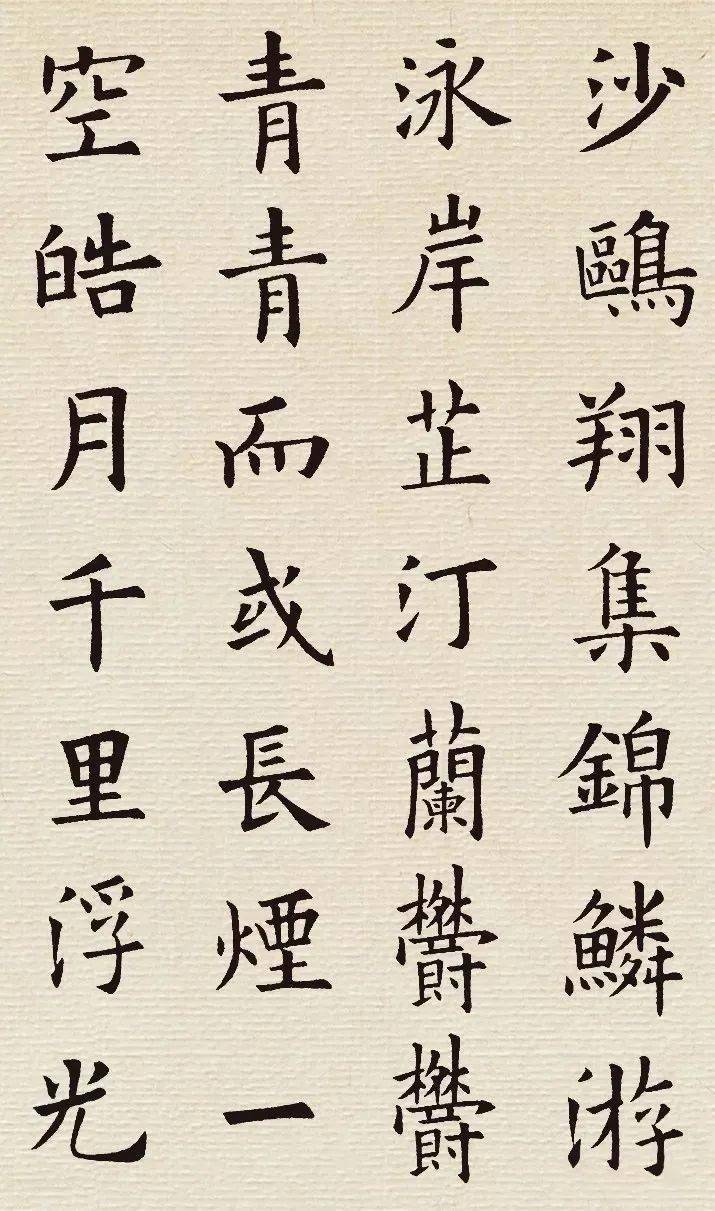 沙鷗翔集錦鱗游
泳岸芷汀蘭欎欎
青青而或長煙一
空皓月千里浮光